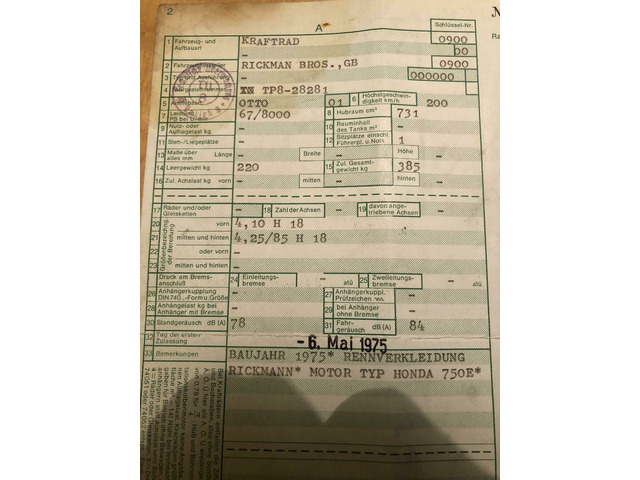 2
A
Schlüssel-Nr.
1 Fahrzeug- und Aufbauart KRAFTRAD 0900
00
2 RICKMAN BROS.,GB 0900
3 – 000000
4 TP8-28281
5 OTTO 01 6 Höchstgeschwindigkeit km/h 200
7 Leistung 67/8000 8 Hubraum cm³ 731
9 Nutz- oder Aufliegelast kg – 10 Rauminhalt des Tanks m³ –
11 Steh-/Liegeplätze – 12 Sitzplätze einschl. Führerpl. u. Nots. 1
13 Maße über alles mm Länge – Breite – Höhe –
14 Leergewicht kg 220 15 Zul. Gesamtgewicht kg 385
16 Zul. Achslast kg vorn – mitten – hinten –
17 Räder und/oder Gleisketten – 18 Zahl der Achsen – 19 davon angetriebene Achsen –
20 Größenbezeichnung der Bereifung vorn 4,10 H 18
21 mitten und hinten 4,25/85 H 18
22 oder vorn –
23 mitten und hinten –
Druck am Bremsanschluß 24 Einleitungsbremse – atü 25 Zweileitungsbremse – atü
26 Anhängerkupplung DIN 740.,-Form u. Größe – 27 Anhängerkuppl. Prüfzeichen –
28 Anhängelast kg bei Anhänger mit Bremse – 29 bei Anhänger ohne Bremse –
30 Standgeräusch dB (A) 78 31 Fahrgeräusch dB (A) 84
32 Tag der ersten Zulassung – 6. Mai 1975
33 Bemerkungen BAUJAHR 1975* RENNVERKLEIDUNG
RICKMANN* MOTOR TYP HONDA 750E*